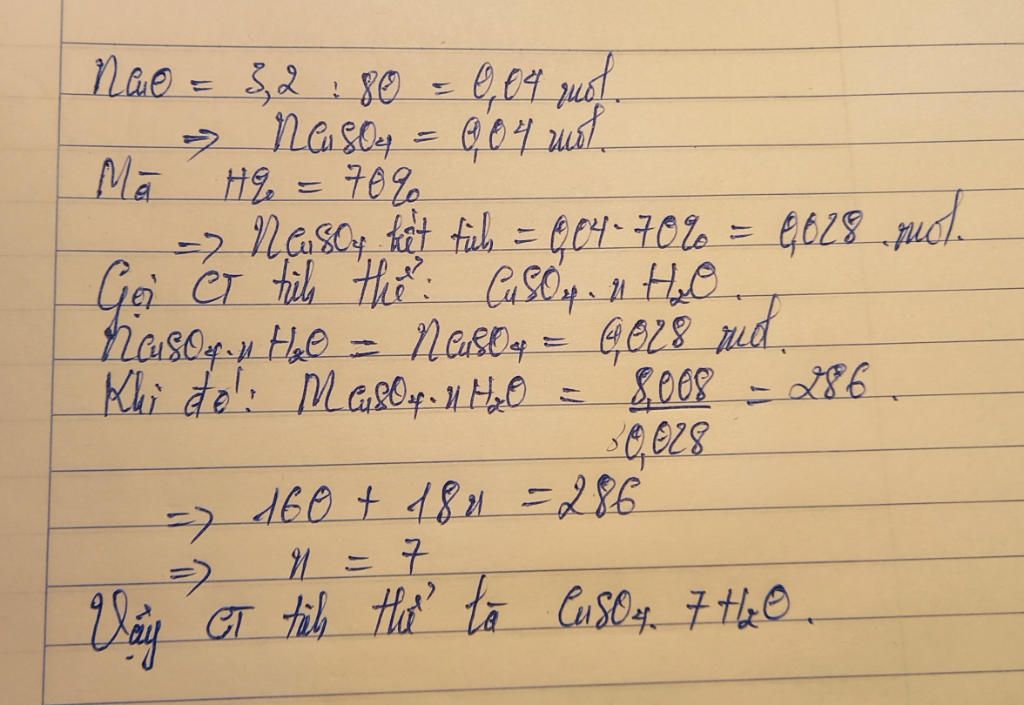 nCuO = 3,2 : 80 = 0,04 mol.
=> nCuSO4 = 0,04 mol.
Mà H% = 70%
=> nCuSO4 kết tinh = 0,04 . 70% = 0,028 mol.
Gọi CT tinh thể: CuSO4 . n H2O.
nCuSO4.n H2O = nCuSO4 = 0,028 mol.
Khi đó: MCuSO4.nH2O = 8,008 / 0,028 = 286.
=> 160 + 18n = 286
=> n = 7
Vậy CT tinh thể là CuSO4. 7H2O.